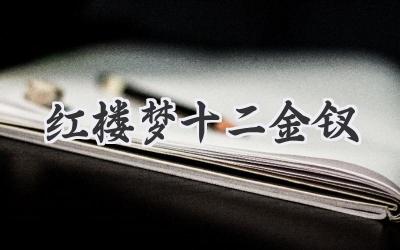 红楼梦十二金钗